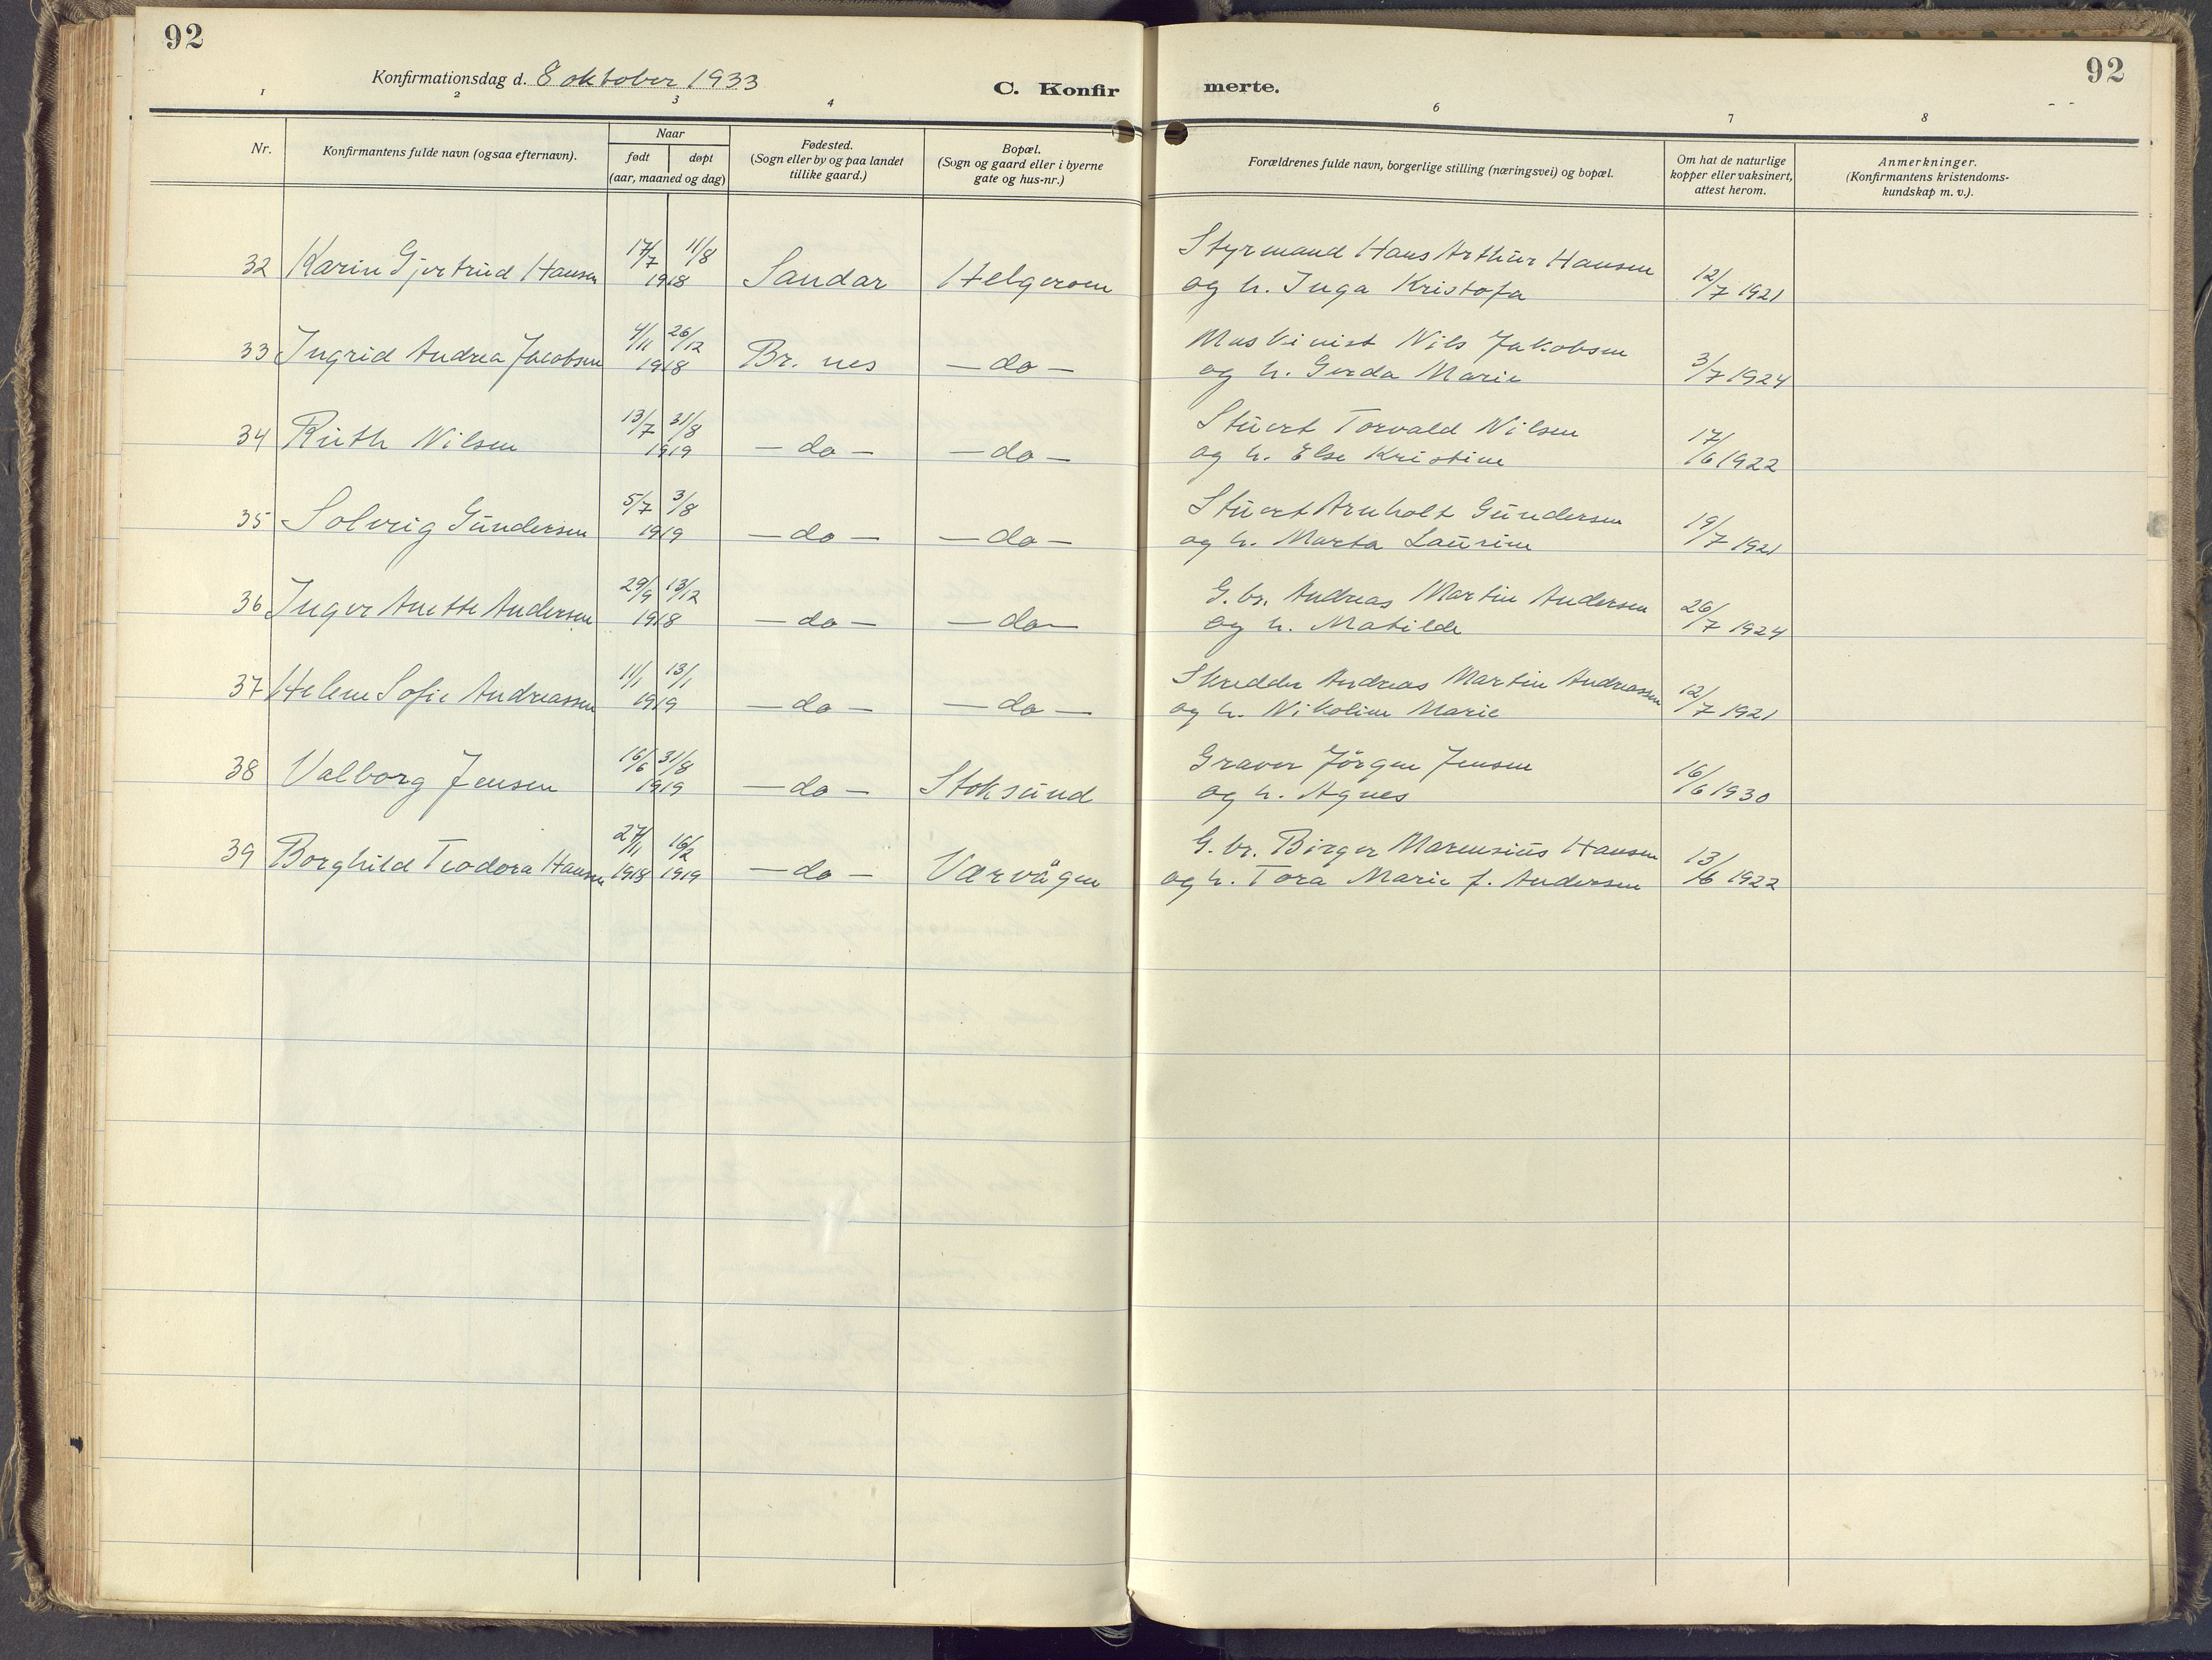 92
Konfirmationsdag d. 8 oktober 1933
C. Konfir
merte.
92
1 2 3 4 6 7 8
Nr.
Konfirmantens fulde navn (ogsaa efternavn).
Naar
født døpt
(aar, maaned og dag)
Fødested.
(Sogn eller by og paa landet
tillike gaard.)
Bopæl.
(Sogn og gaard eller i byerne
gate og hus-nr.)
Forældrenes fulde navn, borgerlige stilling (næringsvei) og bopæl.
Om hat de naturlige
kopper eller vaksinert,
attest herom.
Anmerkninger.
(Konfirmantens kristendoms-
kundskap m. v.).
17/7 11/8 Styrmand Hans Arthur Hansen
32 Karin Gjertrud Hansen 1918 Sandar Helgeroen og h. Inga Kristofa 12/7 1921
4/11 26/12 Maskinist Nils Jakobsen
33 Ingrid Andrea Jacobsen 1918 Br. nes — do — og h. Gerda Marie 3/7 1924
13/7 31/8 Stuert Torvald Nilsen
34 Ruth Nilsen 1919 — do — — do — og h. Else Kristine 17/6 1922
5/7 3/8 Stuert Arnholt Gundersen
35 Solveig Gundersen 1919 — do — — do — og h. Marta Laurine 19/7 1921
29/9 13/12 G. br. Andreas Martin Andersen
36 Inger Anette Andersen 1918 — do — — do — og h. Matilde 26/7 1924
11/1 13/1 Skredder Andreas Martin Andreassen
37 Helene Sofie Andreassen 1919 — do — — do — og h. Nikoline Marie 12/7 1921
16/6 31/8 Graver Jörgen Jensen
38 Valborg Jensen 1919 — do — Stoksund og h. Agnes 16/6 1930
27/11 16/2 G. br. Birger Marensius Hansen
39 Borghild Teodora Hansen 1918 1919 — do — Værvågen og h. Tora Marie f. Andersen 13/6 1922